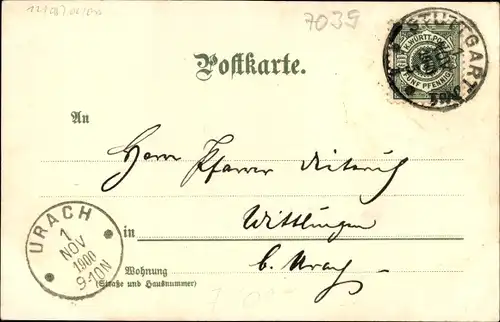 7039
STUTTGART
K. WÜRTT. POST
FÜNF PFENNIG
Postkarte.
An
Herrn Pfarrer Dieterich
in Wittlingen
b. Urach
Wohnung
(Straße und Hausnummer)
URACH
1
NOV
1900
9-10N